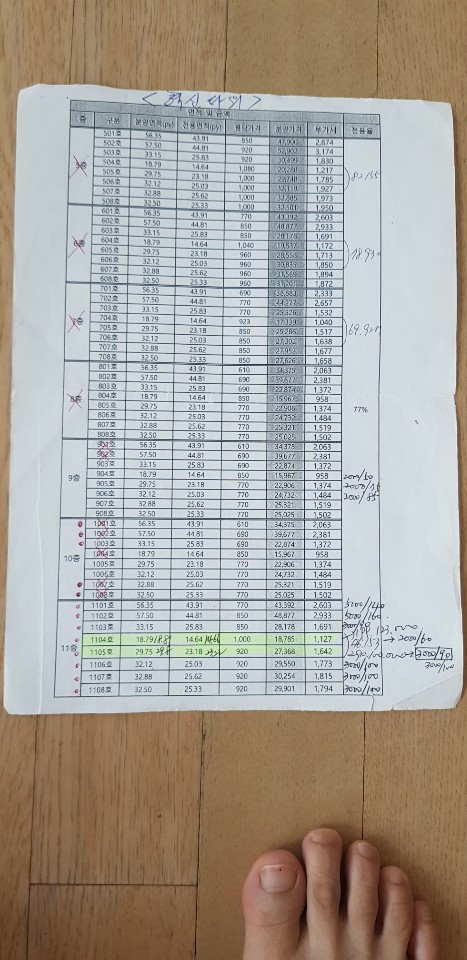 면적 및 금액
층 구분 분양면적(py) 전용면적(py) 평당가격 분양가격 부가세 전용율
5층
501호 56.35 43.91 850 47,900 2,874
502호 57.50 44.81 920 52,902 3,174
503호 33.15 25.83 920 30,499 1,830
504호 18.79 14.64 1,080 20,288 1,217
505호 29.75 23.18 1,000 29,748 1,785
506호 32.12 25.03 1,000 32,119 1,927
507호 32.88 25.62 1,000 32,885 1,973
508호 32.50 25.33 1,000 32,501 1,950
6층
601호 56.35 43.91 770 43,392 2,603
602호 57.50 44.81 850 48,877 2,933
603호 33.15 25.83 850 28,178 1,691
604호 18.79 14.64 1,040 19,537 1,172
605호 29.75 23.18 960 28,558 1,713
606호 32.12 25.03 960 30,835 1,850
607호 32.88 25.62 960 31,569 1,894
608호 32.50 25.33 960 31,201 1,872
7층
701호 56.35 43.91 690 38,883 2,333
702호 57.50 44.81 770 44,277 2,657
703호 33.15 25.83 770 25,526 1,532
704호 18.79 14.64 923 17,339 1,040
705호 29.75 23.18 850 25,286 1,517
706호 32.12 25.03 850 27,302 1,638
707호 32.88 25.62 850 27,952 1,677
708호 32.50 25.33 850 27,626 1,658
8층
801호 56.35 43.91 610 34,375 2,063
802호 57.50 44.81 690 39,677 2,381
803호 33.15 25.83 690 22,874 1,372
804호 18.79 14.64 850 15,967 958
805호 29.75 23.18 770 22,906 1,374 77%
806호 32.12 25.03 770 24,732 1,484
807호 32.88 25.62 770 25,321 1,519
808호 32.50 25.33 770 25,025 1,502
9층
901호 56.35 43.91 610 34,375 2,063
902호 57.50 44.81 690 39,677 2,381
903호 33.15 25.83 690 22,874 1,372
904호 18.79 14.64 850 15,967 958
905호 29.75 23.18 770 22,906 1,374
906호 32.12 25.03 770 24,732 1,484 2000/85
907호 32.88 25.62 770 25,321 1,519
908호 32.50 25.33 770 25,025 1,502
10층
1001호 56.35 43.91 610 34,375 2,063
1002호 57.50 44.81 690 39,677 2,381
1003호 33.15 25.83 690 22,874 1,372
1004호 18.79 14.64 850 15,967 958
1005호 29.75 23.18 770 22,906 1,374
1006호 32.12 25.03 770 24,732 1,484
1007호 32.88 25.62 770 25,321 1,519
1008호 32.50 25.33 770 25,025 1,502
11층
1101호 56.35 43.91 770 43,392 2,603
1102호 57.50 44.81 850 48,877 2,933
1103호 33.15 25.83 850 28,178 1,691
1104호 18.79 14.64 1,000 18,785 1,127 2000/60
1105호 29.75 23.18 920 27,368 1,642 3000/90
1106호 32.12 25.03 920 29,550 1,773 3000/100
1107호 32.88 25.62 920 30,254 1,815 3000/100
1108호 32.50 25.33 920 29,901 1,794 3000/100